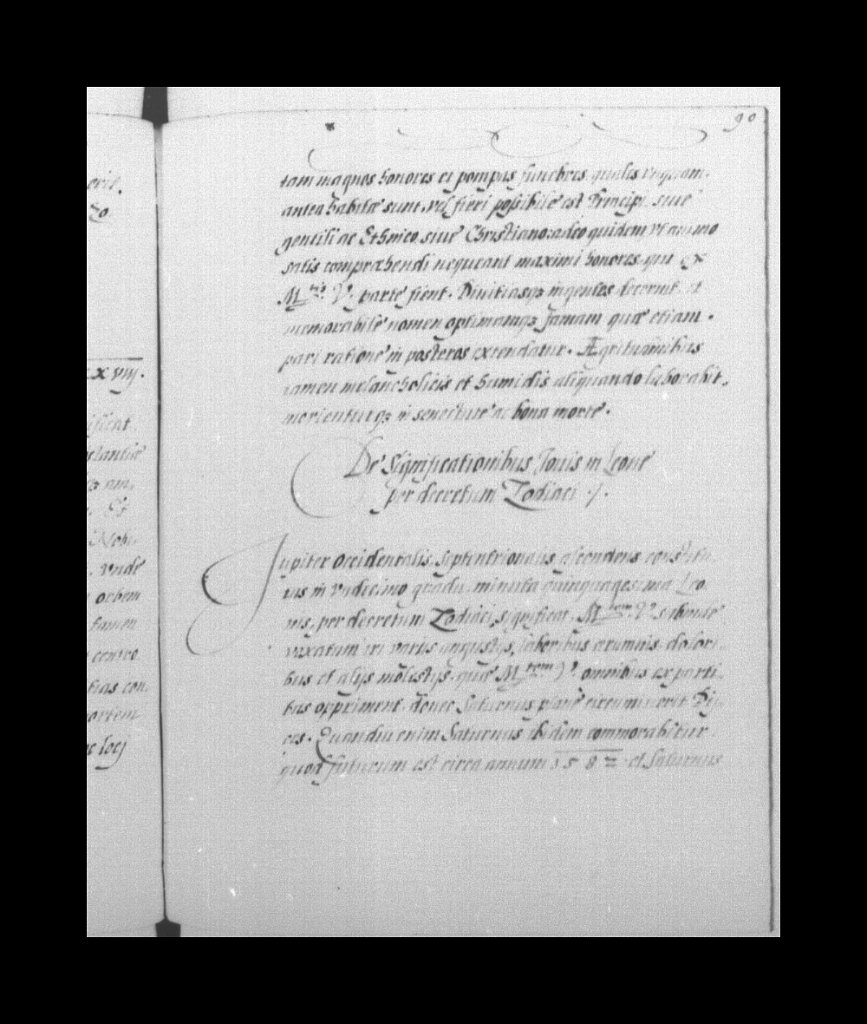 90
tam magnos honores et pompas funebres quales nequam
antea habitæ sunt, vel fieri possibile est Principi siue
gentili ac Ethnico, siue Christiano: adeo quidem vt animo
satis compræhendi nequeant maximi honores qui ex
M.tis V. parte fient. Diuitiasq; ingentes decernit et
memorabile nomen optimamq; famam quæ etiam
pari ratione in posteros extendatur. Ægritudinibus
tamen melancholicis et humidis aliquando laborabit,
morienturq; in senectute ac bona morte.
De Significationibus Iouis in Leone
per decretum Zodiaci
Iupiter Occidentalis, Septentrionalis ascendens constitu
tus in vndecimo gradu, minuta quinquagesima Leo
nis, per decretum Zodiaci, significat M.tem V.
in varijs angustijs, laboribus ærumnis, dolori
bus et alijs molestijs, quæ M.tem V. omnibus ex parti
bus oppriment, donec Saturnus plane circumiuerit Pis
ces. Quandiu enim Saturnus ibidem commorabitur
quod futurum est circa annum 1582 et Saturnus
erit.
xxviij.
Et
vnde
orbem
tamen
centro
tias con
mortem
loci